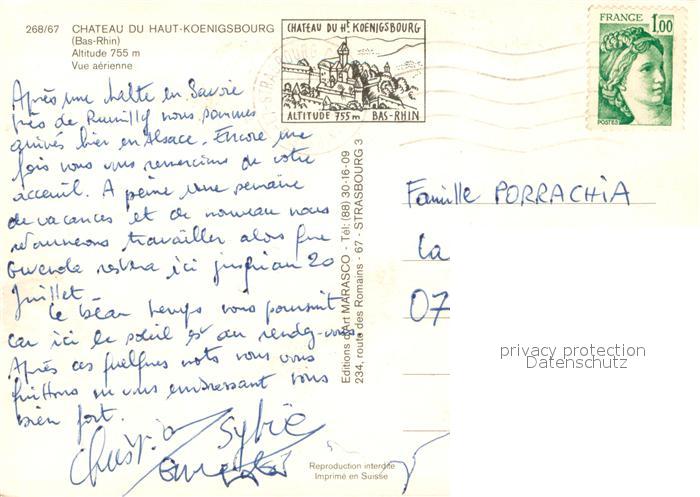 268/67 CHATEAU DU HAUT-KOENIGSBOURG
(Bas-Rhin)
Altitude 755 m
Vue aérienne
CHATEAU DU Ht KOENIGSBOURG
ALTITUDE 755 m BAS-RHIN
FRANCE 1,00
POSTES
Après une halte en Savoie
près de Rumilly nous sommes
arrivés hier en Alsace. Encore une
fois nous vous remercions de votre
acceuil. A peine une semaine
de vacances et de nouveau nous
retournons travailler alors que
Gwenda restera ici jusqu'au 20
Juillet.
Le beau temps nous poursuit
car ici le soleil est au rendez-vous.
Après ces quelques mots nous vous
quittons en vous embrassant tous
bien fort.
Sylvie
Editions d'Art MARASCO - Tél: (88) 30-16-09
234, route des Romains - 67 - STRASBOURG 3
Famille PORRACHIA
La
07
privacy protection
Datenschutz
Reproduction interdite
Imprimé en Suisse